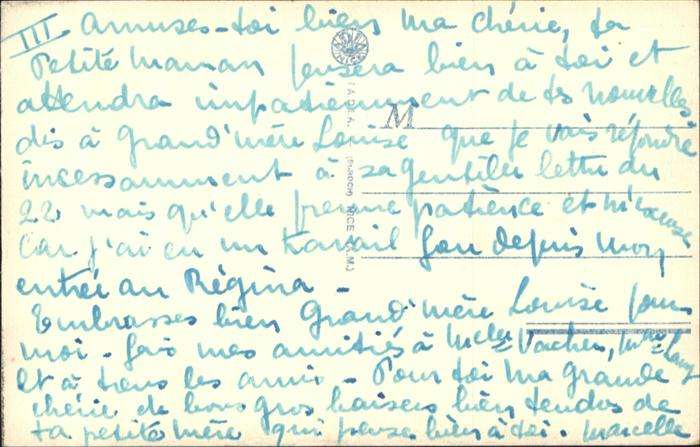 III amuses-toi bien ma chérie, ta
Petite Maman pensera bien à toi et
attendra impatiemment de tes nouvelles
dis à Grand'mère Louise que je vais répondre
incessamment à sa gentille lettre du
22 mais qu'elle prenne patience et m'excuse
car j'ai eu un travail fou depuis mon
entrée au Régina -
Embrasses bien Grand'mère Louise pour
moi. Fais mes amitiés à Melle Vacher, Mme
et à tous les amis - Pour toi ma grande
chérie de bons gros baisers bien tendres de
ta petite mère qui pense bien à toi. Marcelle
M
NICE (A.M.)